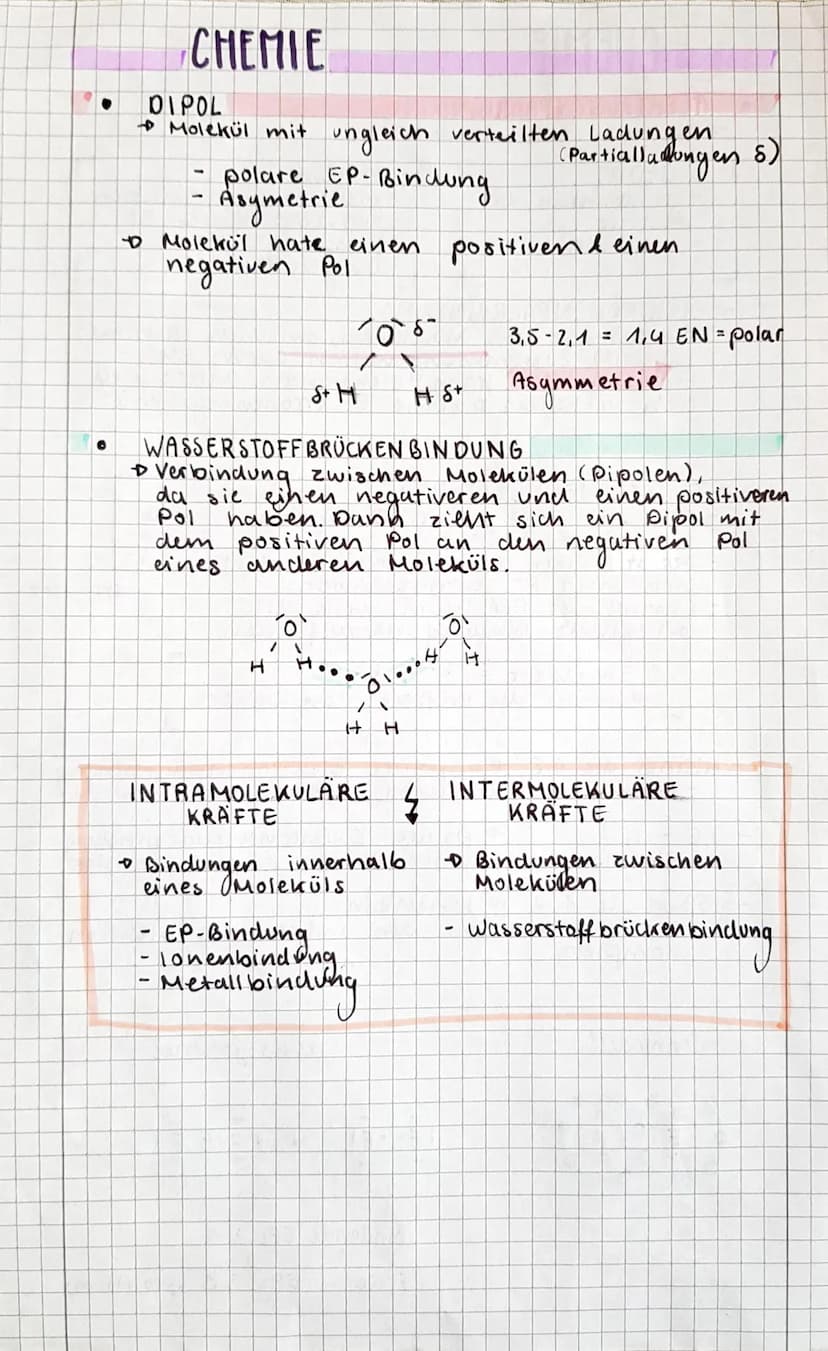 CHEMIE
• DIPOL
→ Molekül mit ungleich verteilten Ladungen
(Partialladungen δ)
- polare EP-Bindung
- Asymetrie
→ Molekül hate einen positiven & einen
negativen Pol
O δ-
3,5-2,1 = 1,4 EN = polar
δ+ H H δ+
Asymmetrie
• WASSERSTOFFBRÜCKENBINDUNG
→ Verbindung zwischen Molekülen (Dipolen),
da sie einen negativeren und einen positiveren
Pol haben. Dann zieht sich ein Dipol mit
dem positiven Pol an den negativen Pol
eines anderen Moleküls.
O O
H H H H
O
H H
INTRAMOLEKULÄRE
KRÄFTE
→ Bindungen innerhalb
eines Moleküls
- EP-Bindung
- Ionenbindung
- Metallbindung
INTERMOLEKULÄRE
KRÄFTE
→ Bindungen zwischen
Molekülen
- Wasserstoffbrückenbindung